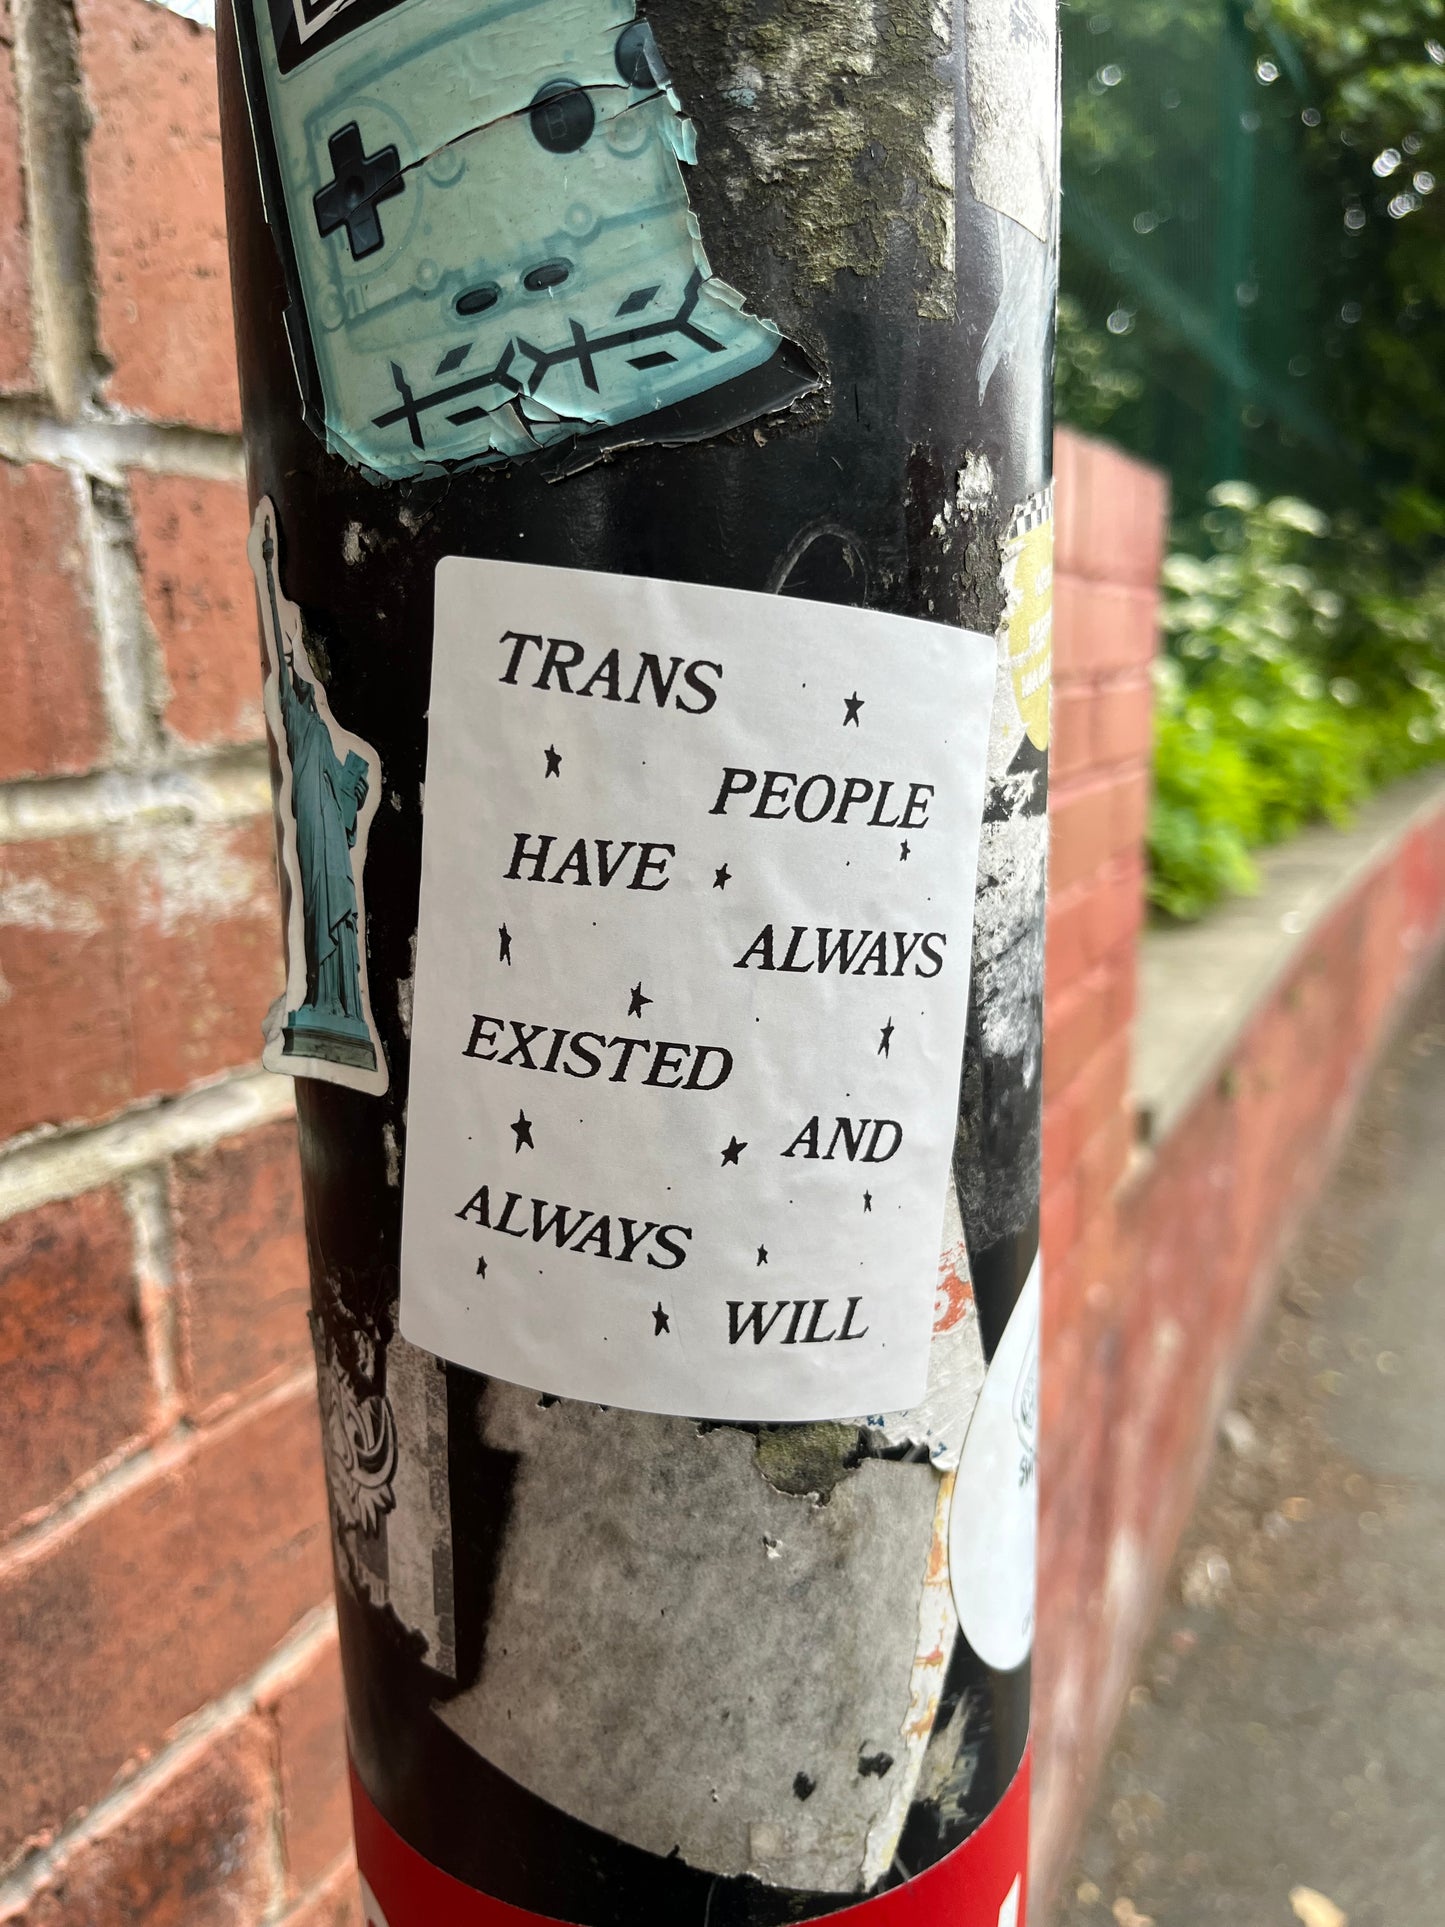 B
TRANS
PEOPLE
HAVE
ALWAYS
EXISTED
AND
ALWAYS
WILL